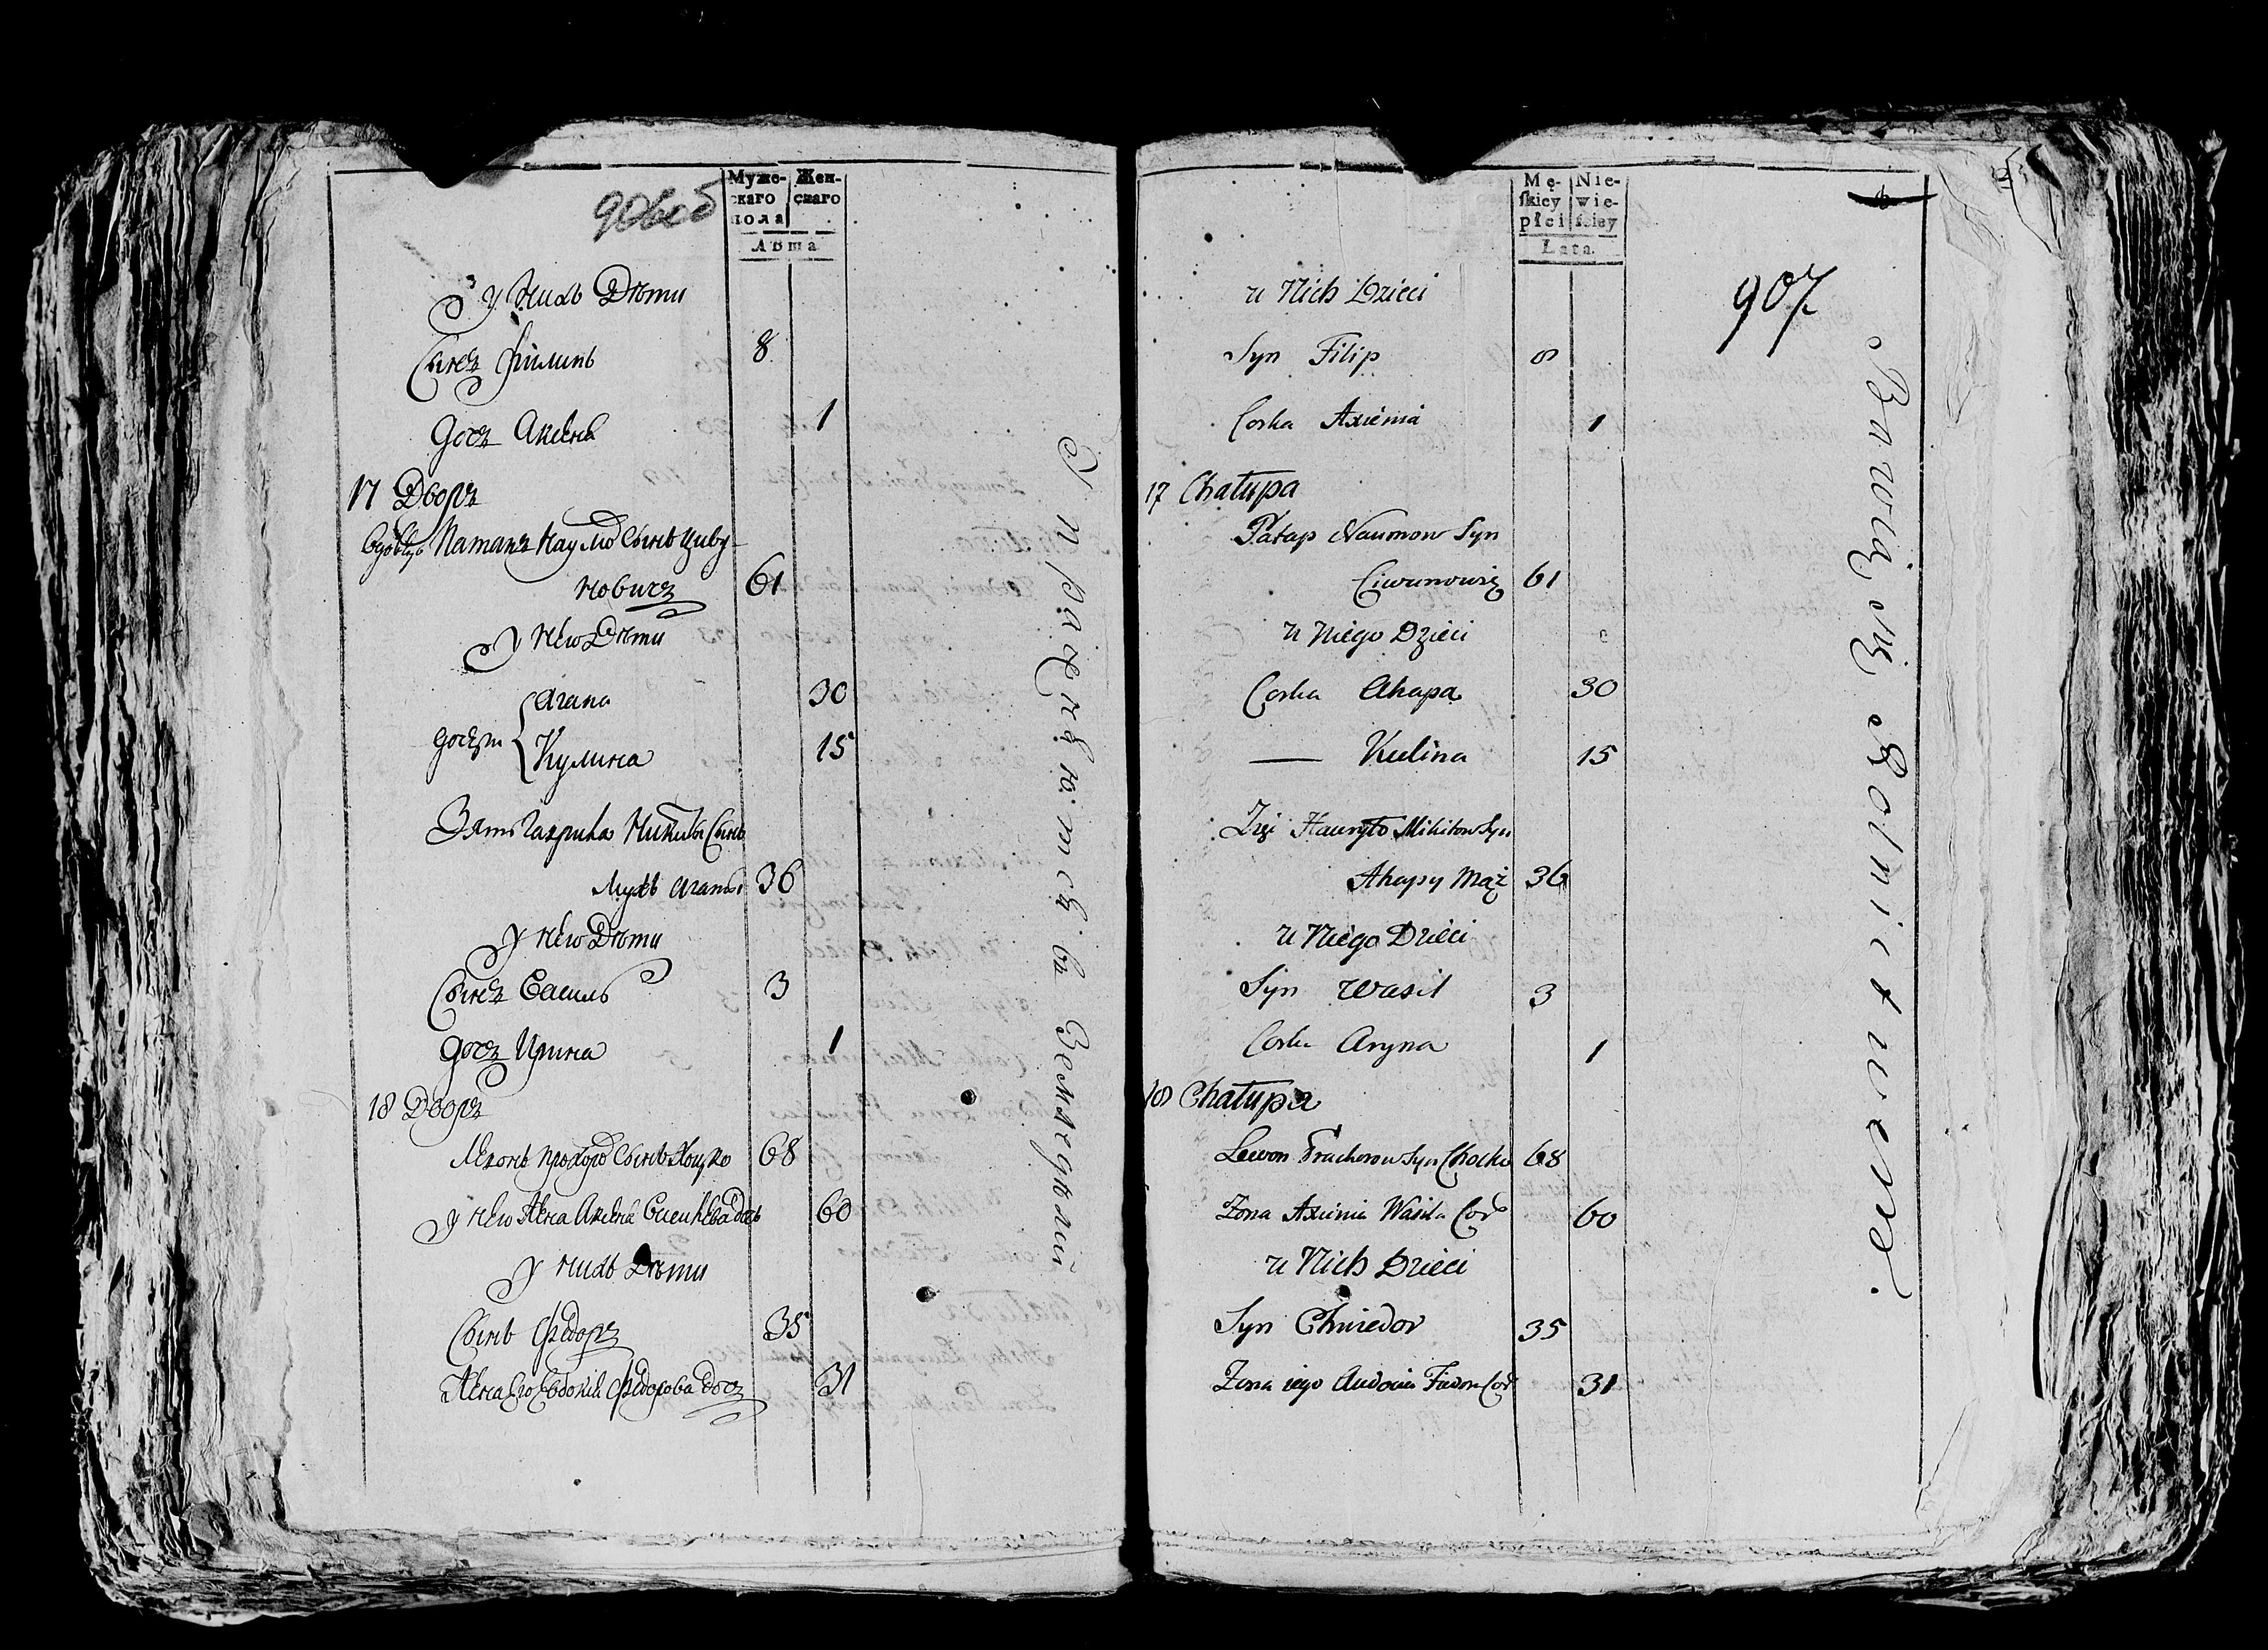 906об
Муже-
скаго
пола
Жен-
скаго
Лѣта
У нихъ Дѣти
Сынъ Филипъ 8
Дочь Аксеня 1
17 Дворъ
Вдовецъ Патапъ Наумовъ Сынъ Циву-
новичъ 61
У него Дѣти
Дочери Агапа 30
Кулина 15
Зять Гаврила Никитинъ Сынъ
Мужъ Агапы 36
У него Дѣти
Сынъ Василь 3
Дочь Ирина 1
18 Дворъ
Левонъ Прохоровъ Сынъ Хоцко 68
У него Жена Аксеня Васильева дочь 60
У нихъ Дѣти
Сынъ Федоръ 35
Жена его Евдокия Федорова дочь 31
Упражняются въ Земледѣлии
Mę-
skiey
płci
Nie-
wie-
sciey
Lata.
907.
u Nich Dzieci
Syn Filip 8
Corka Axienia 1
17 Chałupa
Patap Naumow Syn
Ciwunowicz 61
u Niego Dzieci
Corka Ahapa 30
— Kulina 15
Zięć Hauryło Mikitow Syn
Ahapy Mąż 36
u Niego Dzieci
Syn Wasil 3
Corka Aryna 1
18 Chałupa
Lewon Prachorow Syn Chocko 68
Zona Axienia Wasila Cor 60
u Nich Dzieci
Syn Chwiedor 35
Zona iego Audocia Fiedora Cor 31
Bawią się Rolnictwem.